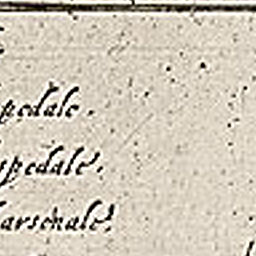 pedale.
spedale.
arsenale.